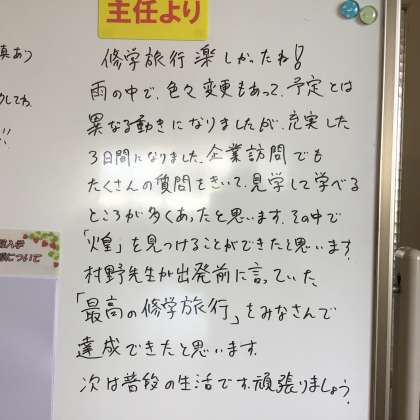 主任より
修学旅行 楽しかったね!
雨の中で、色々変更もあって、予定とは
異なる動きになりましたが、充実した
3日間になりました。企業訪問でも
たくさんの質問をきいて、見学して学べる
ところが多くあったと思います。その中で
「煌」を見つけることができたと思います。
村野先生が出発前に言っていた、
「最高の修学旅行」をみなさんで
達成できたと思います。
次は普段の生活です。頑張りましょう。
真あつ
!!
入学
について